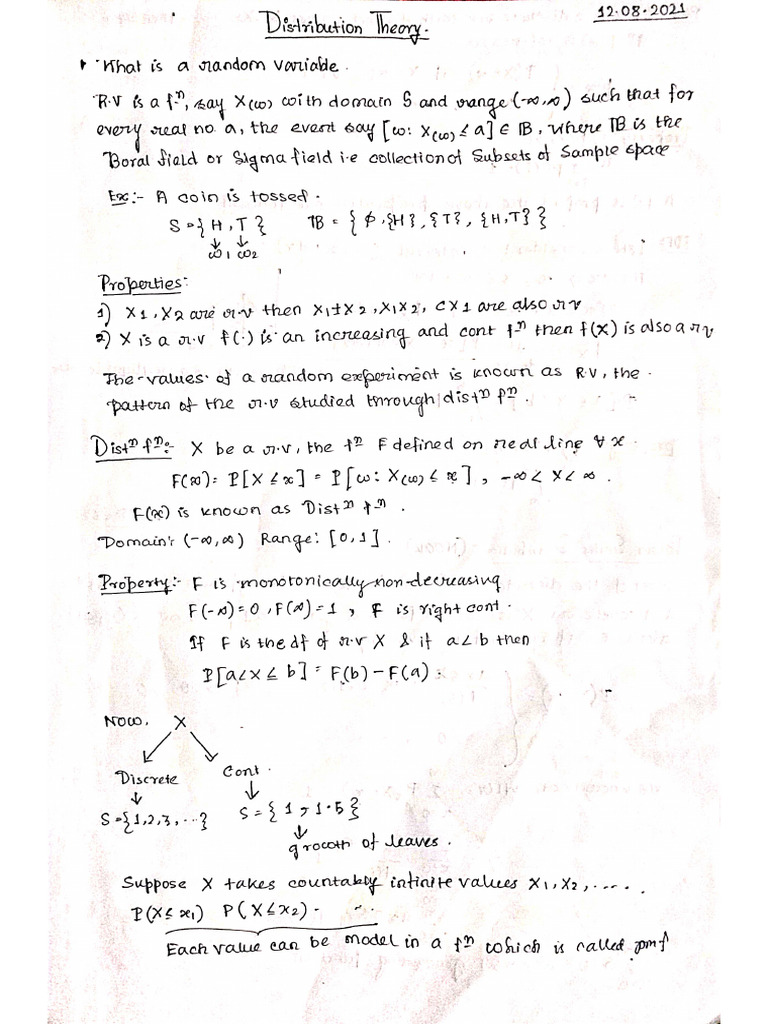 12.08.2021
Distribution Theory.
What is a random variable.
R.V is a fⁿ, say X(ω) with domain S and range (-∞,∞) such that for
every real no a, the event say [ω: X(ω) ≤ a] ∈ B, where B is the
Boral field or Sigma field i.e collection of Subsets of Sample space
Ex:- A coin is tossed.
S = {H, T} B = {ϕ, {H}, {T}, {H,T}}
↓ ↓
ω1 ω2
Properties:
1) X1, X2 are r.v then X1±X2, X1X2, CX1 are also r v
2) X is a r.v f(.) is an increasing and cont fⁿ then f(X) is also a r v
The values of a random experiment is known as R.V, the
pattern of the r.v studied through distⁿ fⁿ.
Distⁿ fⁿ:- X be a r.v, the fⁿ F defined on real line ∀ x.
F(x) = P[X ≤ x] = P[ω: X(ω) ≤ x], -∞ < X < ∞.
F(x) is known as Distⁿ fⁿ.
Domain: (-∞,∞) Range: [0,1].
Property:- F is monotonically non-decreasing
F(-∞)=0, F(∞)=1, F is right cont.
If F is the df of r.v X & if a<b then
P[a<X≤b] = F(b) - F(a)
Now, X
Discrete Cont.
↓ ↓
S={1,2,3,...} S={1, 1.5}
↓
growth of leaves.
Suppose X takes countably infinite values X1, X2, .....
P(X≤x1) P(X≤x2) . ...
Each value can be model in a fⁿ which is called pmf